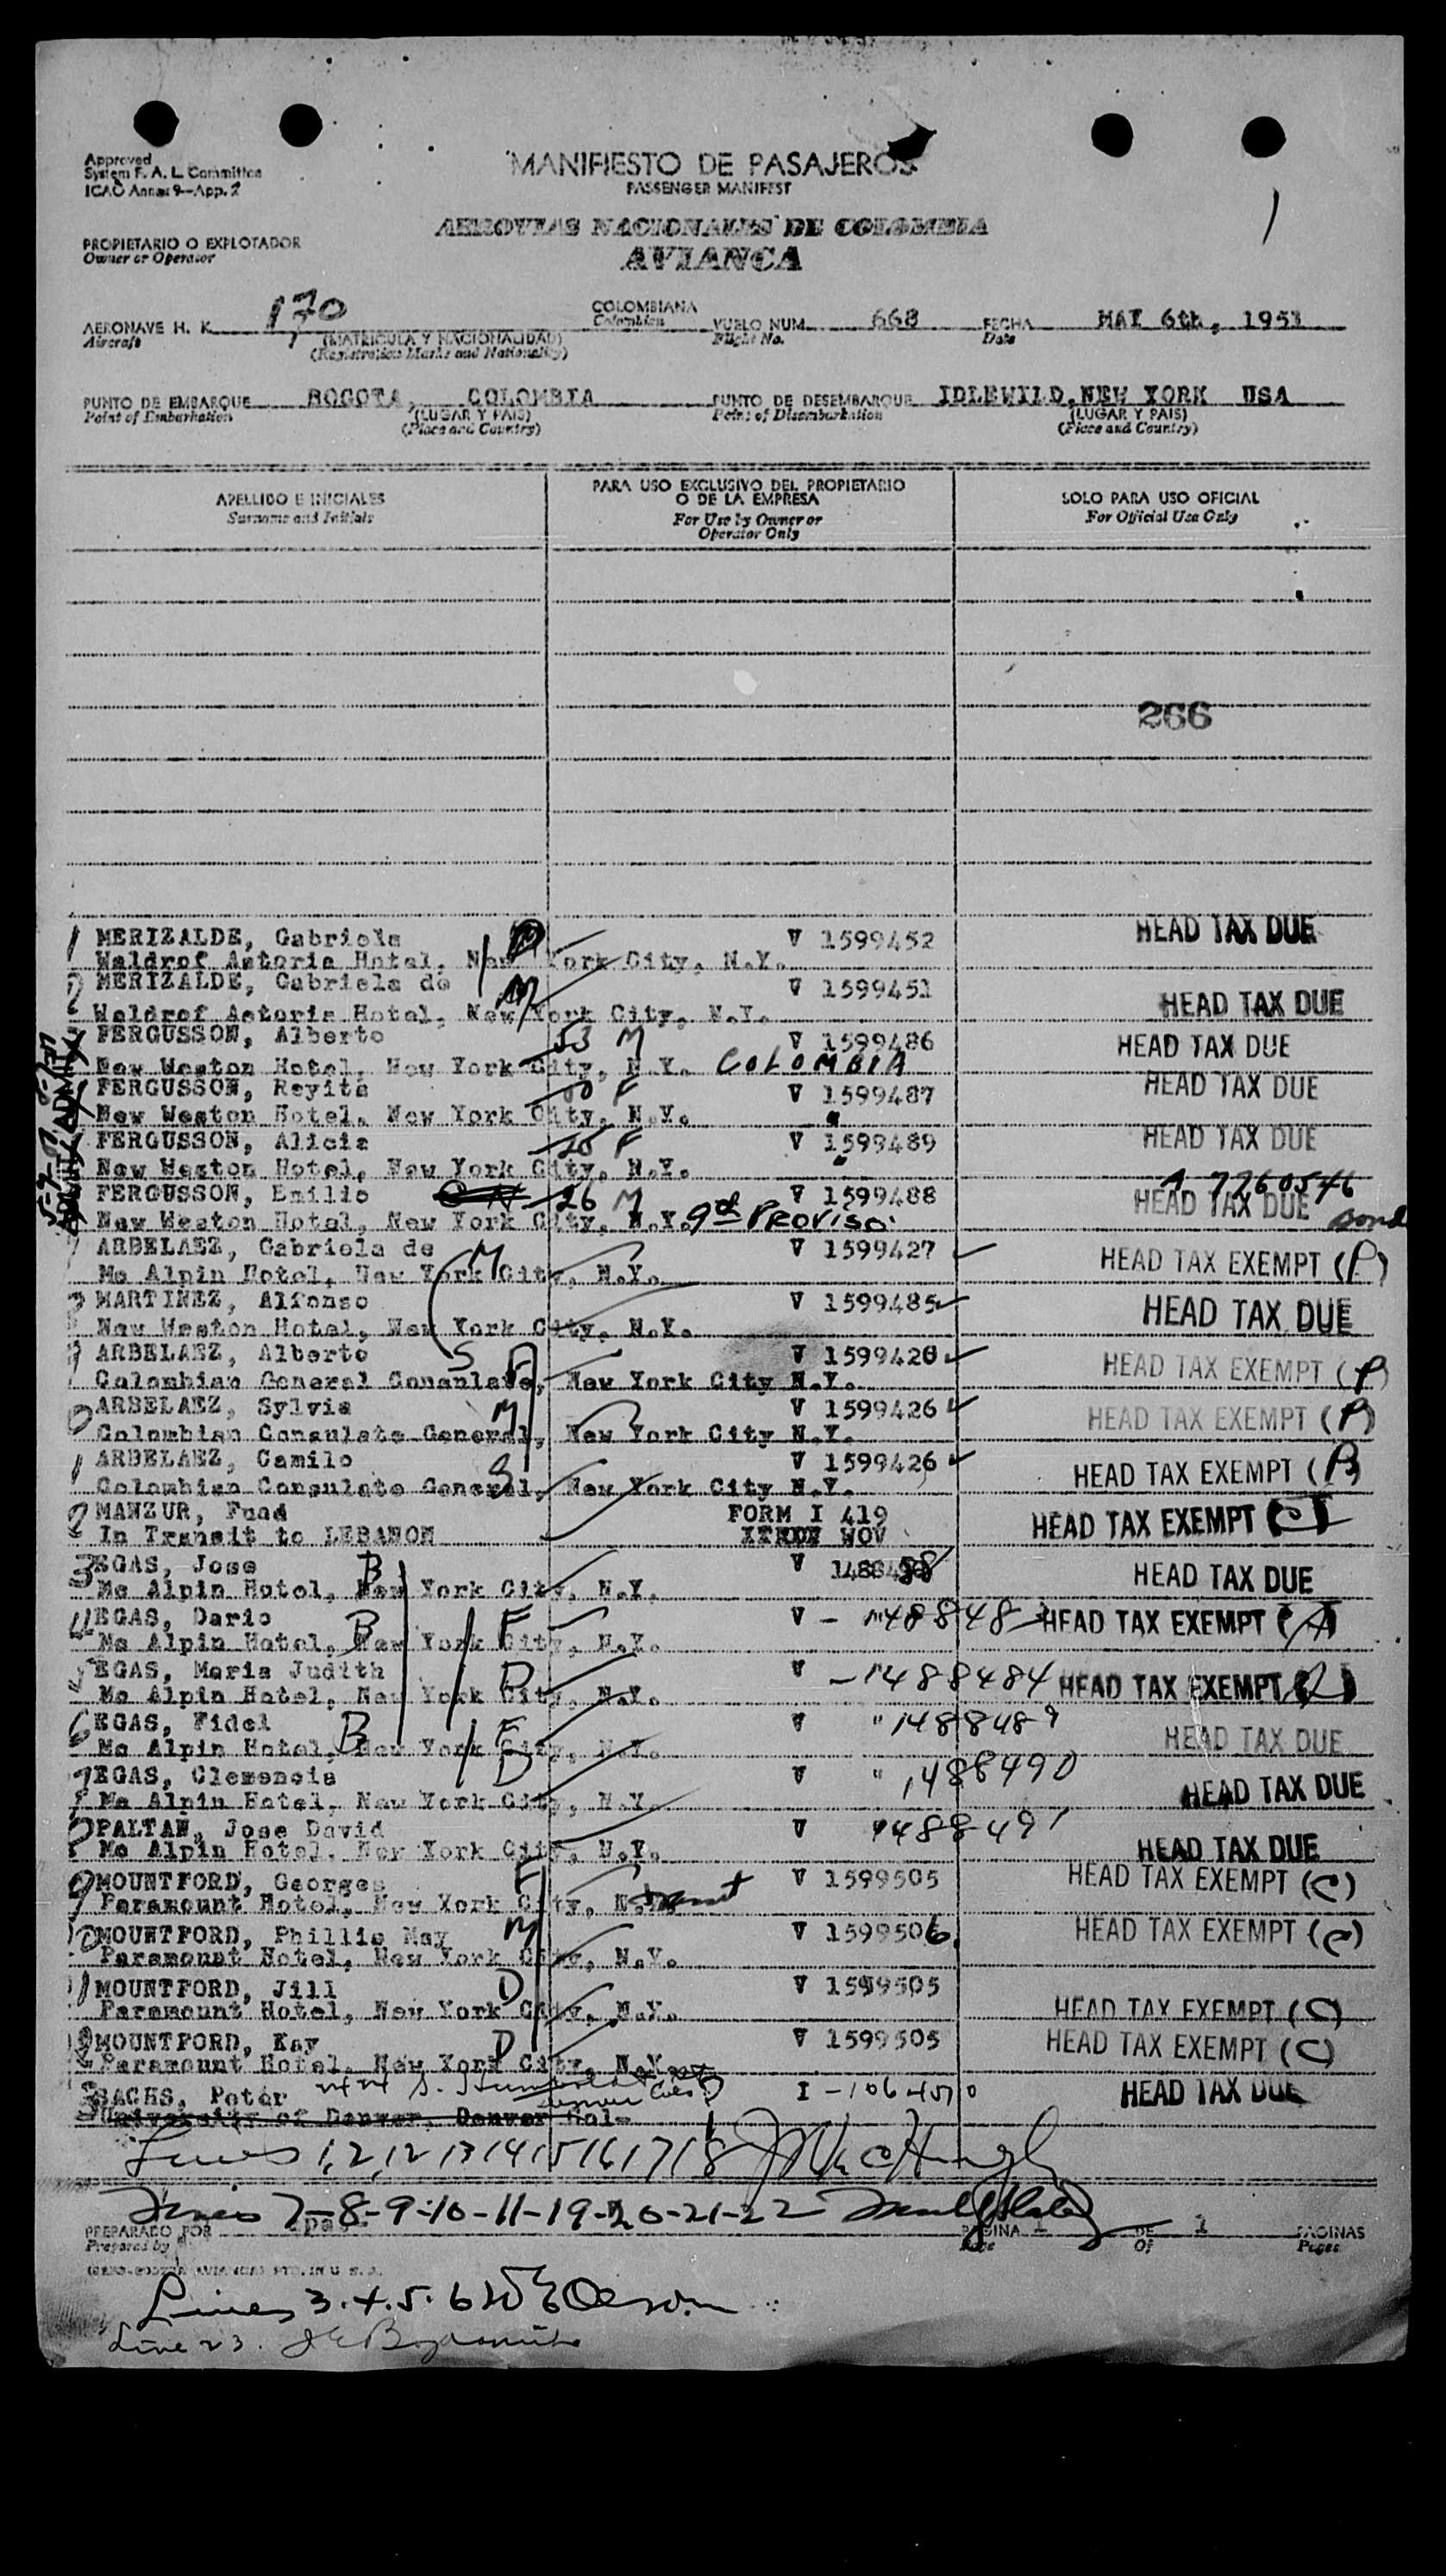 Approved
System F. A. L. Committee
ICAO Annex 9—App. 2
MANIFIESTO DE PASAJEROS
PASSENGER MANIFEST
AEROVIAS NACIONALES DE COLOMBIA
AVIANCA
PROPIETARIO O EXPLOTADOR
Owner or Operator
AERONAVE H. K. 170 COLOMBIANA VUELO NUM. 668 FECHA MAY 6th, 1951
Aircraft (MATRICULA Y NACIONALIDAD) Colombian Flight No. Date
(Registration Marks and Nationality)
PUNTO DE EMBARQUE BOGOTA, COLOMBIA PUNTO DE DESEMBARQUE IDLEWILD, NEW YORK USA
Point of Embarkation (LUGAR Y PAIS) Point of Disembarkation (LUGAR Y PAIS)
(Place and Country) (Place and Country)
APELLIDO E INICIALES
Surname and Initials
PARA USO EXCLUSIVO DEL PROPIETARIO
O DE LA EMPRESA
For Use by Owner or
Operator Only
SOLO PARA USO OFICIAL
For Official Use Only
266
1 MERIZALDE, Gabriela D V 1599452 HEAD TAX DUE
Waldrof Astoria Hotel, New York City, N.Y.
2 MERIZALDE, Gabriela de M V 1599451 HEAD TAX DUE
Waldrof Astoria Hotel, New York City, N.Y.
FERGUSSON, Alberto 53 M V 1599486 HEAD TAX DUE
New Weston Hotel, New York City, N.Y. COLOMBIA
FERGUSSON, Reyita F V 1599487 HEAD TAX DUE
New Weston Hotel, New York City, N.Y.
FERGUSSON, Alicia F V 1599489 HEAD TAX DUE
New Weston Hotel, New York City, N.Y.
FERGUSSON, Emilio 26 M V 1599488 HEAD TAX DUE A 7760546
New Weston Hotel, New York City, N.Y. 9th PROVISO Bond
7 ARBELAEZ, Gabriela de M V 1599427 HEAD TAX EXEMPT (P)
Mc Alpin Hotel, New York City, N.Y.
MARTINEZ, Alfonso V 1599485 HEAD TAX DUE
New Weston Hotel, New York City, N.Y.
9 ARBELAEZ, Alberto S F V 1599428 HEAD TAX EXEMPT (P)
Colombian General Consulate, New York City N.Y.
0 ARBELAEZ, Sylvia M V 1599426 HEAD TAX EXEMPT (P)
Colombian Consulate General, New York City N.Y.
1 ARBELAEZ, Camilo S V 1599426 HEAD TAX EXEMPT (P)
Colombian Consulate General, New York City N.Y.
2 MANZUR, Fuad FORM I 419 HEAD TAX EXEMPT
In Transit to LEBANON
3 EGAS, Jose B V HEAD TAX DUE
Mc Alpin Hotel, New York City, N.Y.
4 EGAS, Dario B F V HEAD TAX EXEMPT
Mc Alpin Hotel, New York City, N.Y.
5 EGAS, Maria Judith D V 1488484 HEAD TAX EXEMPT
Mc Alpin Hotel, New York City, N.Y.
6 EGAS, Fidel B F V 1488489 HEAD TAX DUE
Mc Alpin Hotel, New York City, N.Y.
7 EGAS, Clemencia D V 1488490 HEAD TAX DUE
Mc Alpin Hotel, New York City, N.Y.
8 PALTAN, Jose David V 1488491 HEAD TAX DUE
Mc Alpin Hotel, New York City, N.Y.
9 MOUNTFORD, Georges F V 1599505 HEAD TAX EXEMPT (C)
Paramount Hotel, New York City, N.Y.
MOUNTFORD, Phillis May M V 1599506 HEAD TAX EXEMPT (C)
Paramount Hotel, New York City, N.Y.
MOUNTFORD, Jill D V 1599505 HEAD TAX EXEMPT (C)
Paramount Hotel, New York City, N.Y.
MOUNTFORD, Kay D V 1599505 HEAD TAX EXEMPT (C)
Paramount Hotel, New York City, N.Y.
SACHS, Peter I HEAD TAX DUE
University of Denver, Denver Col
Lines 1, 2, 12 13 14 15 16 17 18
Lines 7-8-9-10-11-19-20-21-22
PREPARADO POR PAGINA 1 DE 1 PAGINAS
Prepared by Page Of Pages
Lines 3. 4. 5. 6
Line 23.